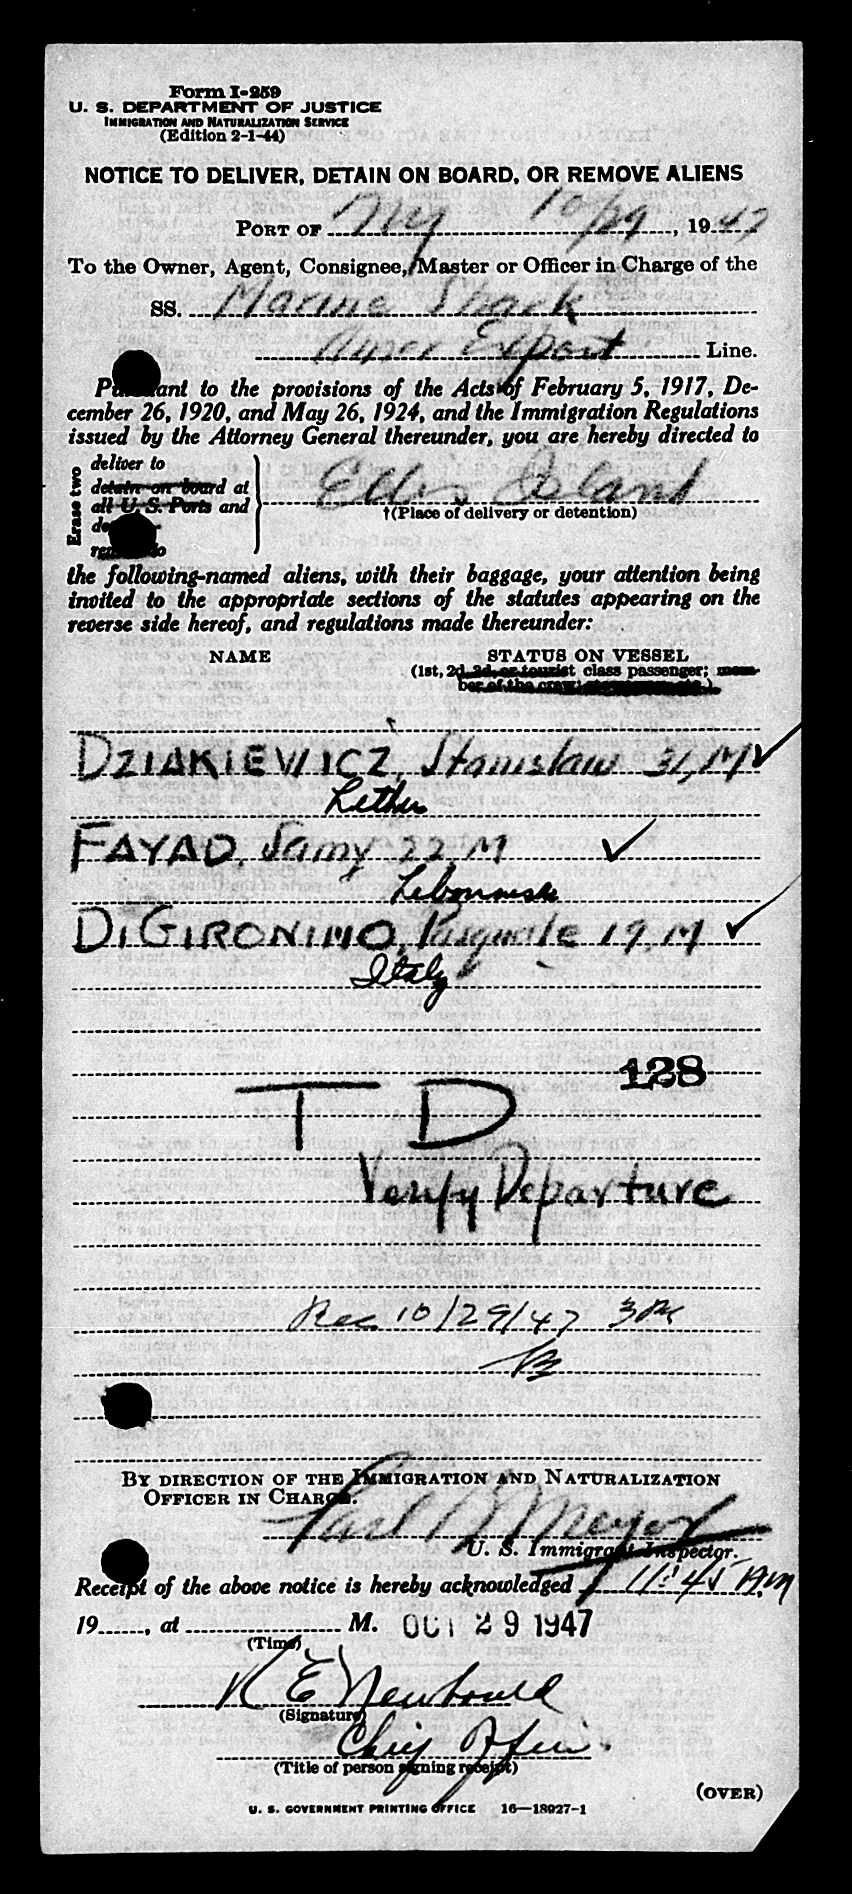 Form I-259
U. S. DEPARTMENT OF JUSTICE
IMMIGRATION AND NATURALIZATION SERVICE
(Edition 2-1-44)
NOTICE TO DELIVER, DETAIN ON BOARD, OR REMOVE ALIENS
PORT OF NY 10/29, 1947
To the Owner, Agent, Consignee, Master or Officer in Charge of the
SS. Marine Shark
Amer Export Line.
Pursuant to the provisions of the Acts of February 5, 1917, De-
cember 26, 1920, and May 26, 1924, and the Immigration Regulations
issued by the Attorney General thereunder, you are hereby directed to
Erase two
deliver to
detain on board at
all U. S. Ports and
Ellis Island
†(Place of delivery or detention)
the following-named aliens, with their baggage, your attention being
invited to the appropriate sections of the statutes appearing on the
reverse side hereof, and regulations made thereunder:
NAME STATUS ON VESSEL
(1st, 2d, 3d, or tourist class passenger; mem-
ber of the crew;
DZIAKIEWICZ, Stanislaw 31, M ✓
FAYAD, Samy 22, M ✓
DIGIRONIMO, Pasquale 19, M ✓
Italy
128
T D
Verify Departure
Rec 10/29/47 3 PM
BY DIRECTION OF THE IMMIGRATION AND NATURALIZATION
OFFICER IN CHARGE.
U. S. Immigrant Inspector.
Receipt of the above notice is hereby acknowledged 11:45 AM
19......, at .................... M. OCT 29 1947
(Time)
(Signature)
Chief Officer
(Title of person signing receipt)
(OVER)
U. S. GOVERNMENT PRINTING OFFICE 16—18927-1